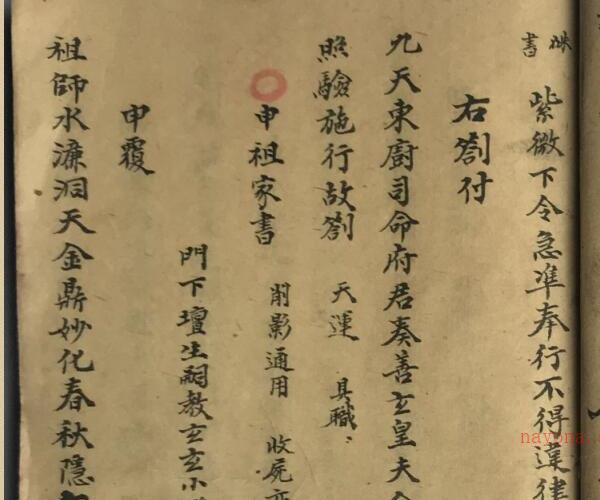 硃書
紫微下令急准奉行不得違律
右劄付
九天東廚司命府君奏善玄皇夫
照驗施行故劄 天運 具職
申祖家書 削影通用 收屍
門下壇生嗣教玄玄小
申覆
祖師水濂洞天金鼎妙化春秋隱
nayona